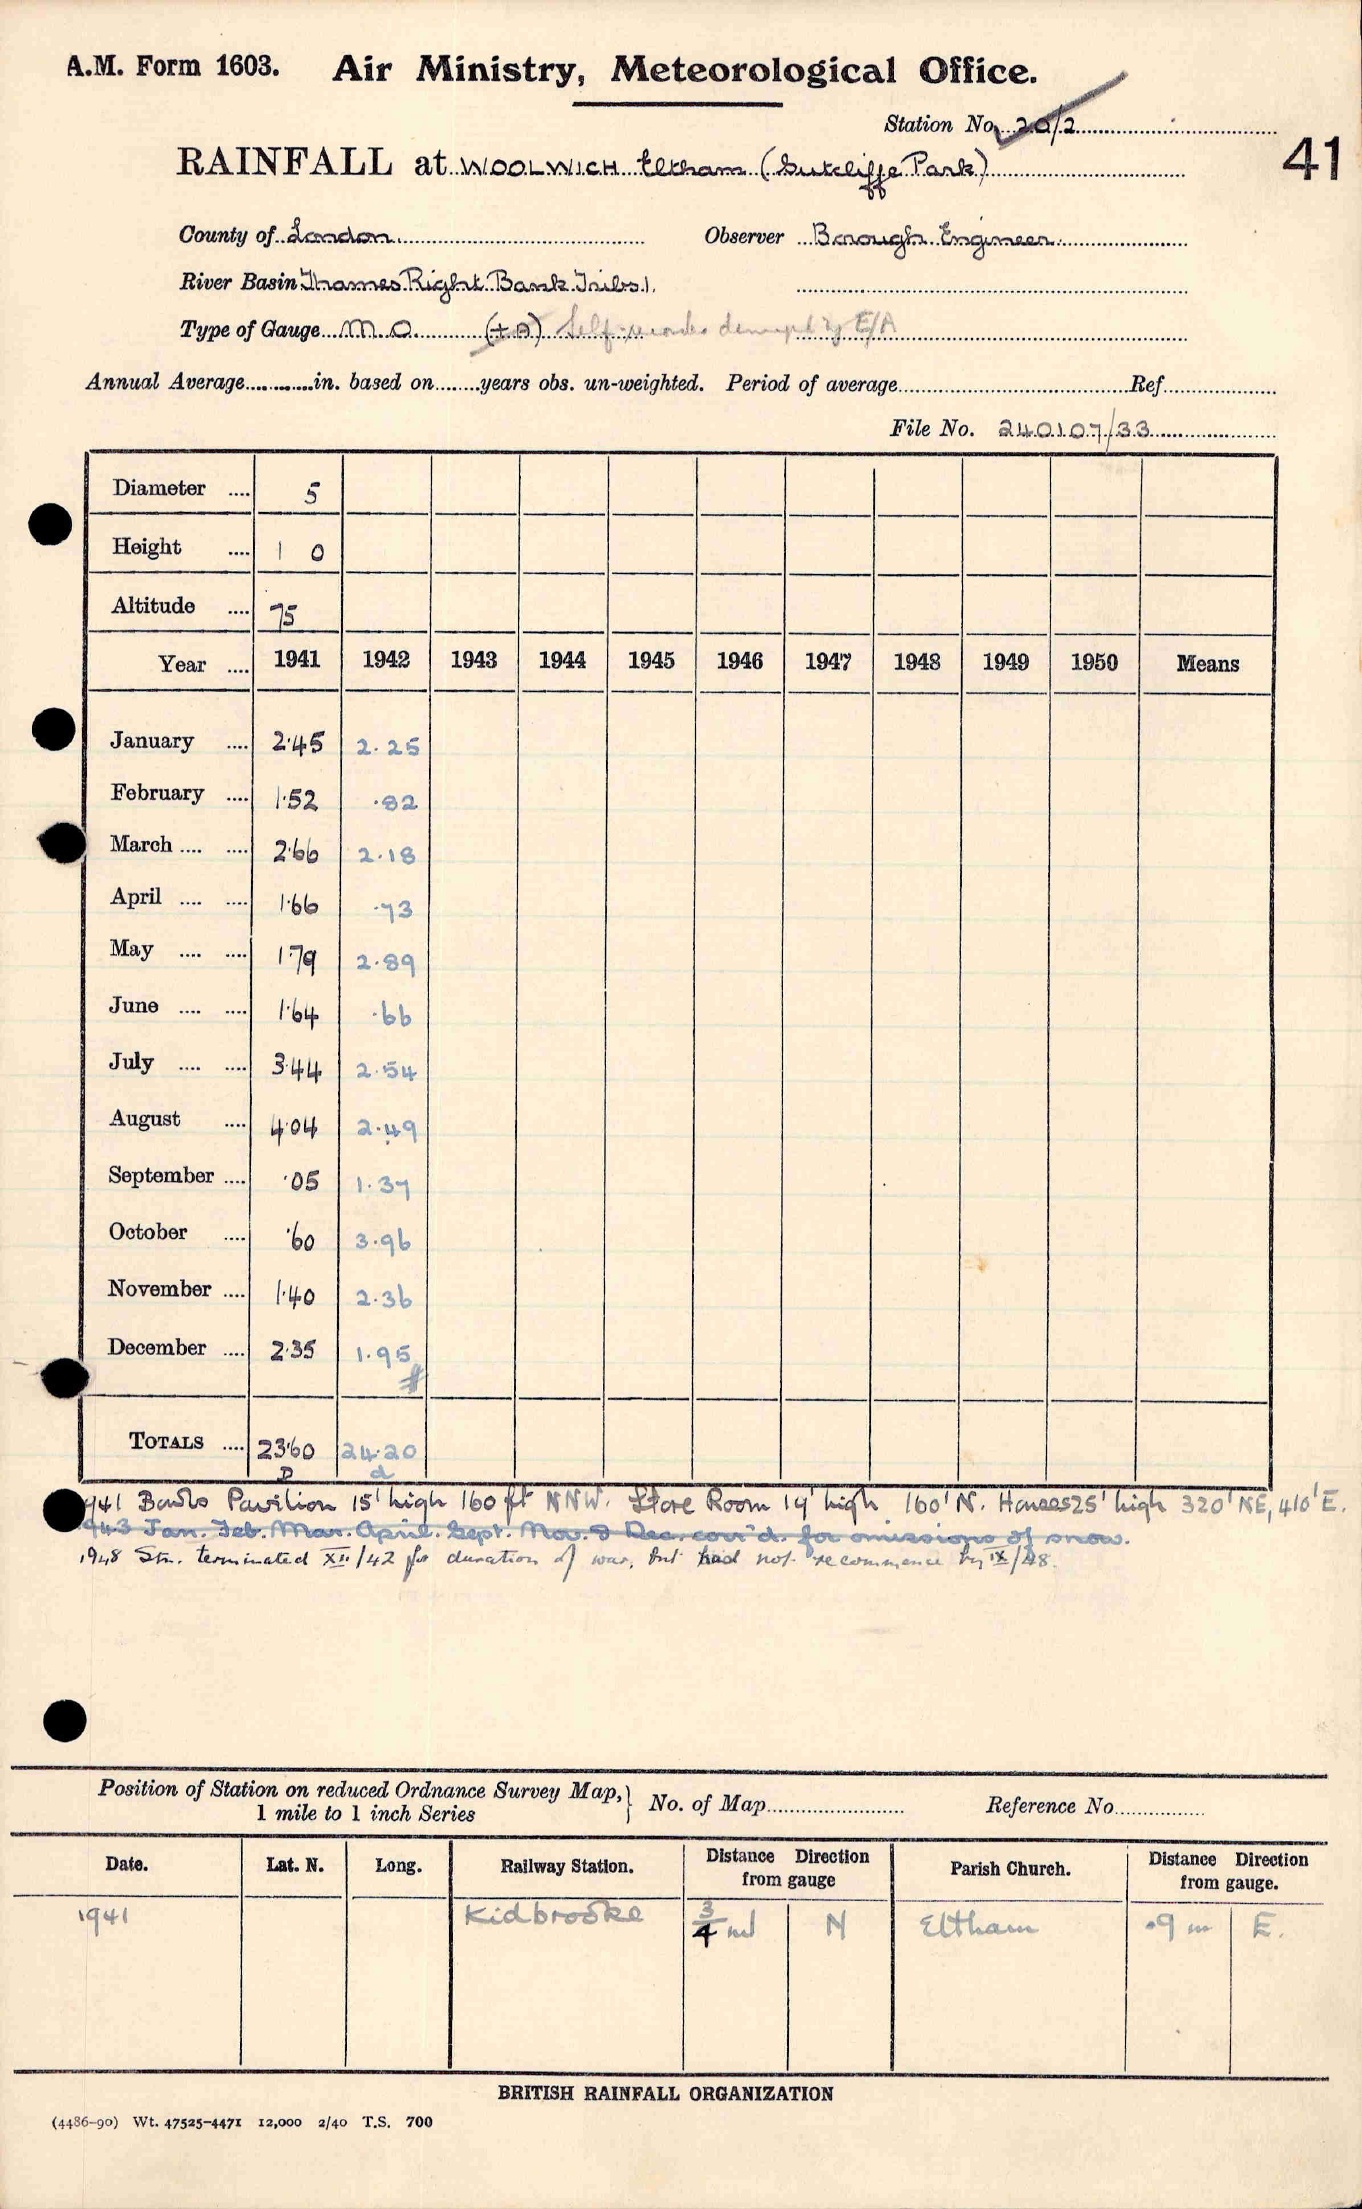 A.M. Form 1603. Air Ministry, Meteorological Office.
Station No. 20/2
RAINFALL at WOOLWICH Eltham (Sutcliffe Park)
41
County of London. Observer Borough Engineer.
River Basin Thames Right Bank Tribs 1.
Type of Gauge M.O. (+A) Self-recorder damaged by E/A
Annual Average in. based on years obs. un-weighted. Period of average Ref.
File No. 240107/33
Diameter .... 5
Height .... 1 0
Altitude .... 75
Year .... 1941 1942 1943 1944 1945 1946 1947 1948 1949 1950 Means
January .... 2.45 2.25
February .... 1.52 .82
March .... .... 2.66 2.18
April .... .... 1.66 .73
May .... .... 1.79 2.89
June .... .... 1.64 .66
July .... .... 3.44 2.54
August .... 4.04 2.49
September .... .05 1.37
October .... .60 3.96
November .... 1.40 2.36
December .... 2.35 1.95
#
TOTALS .... 23.60 24.20
D d
1941 Bowls Pavilion 15' high 160 ft NNW. Store Room 14' high 160' N. Houses 25' high 320' NE, 410' E.
1943 Jan. Feb. Mar. April. Sept. Nov. & Dec. corr'd. for omissions of snow.
1948 Stn. terminated XII/42 for duration of war, but had not recommence by IX/48.
Position of Station on reduced Ordnance Survey Map, } No. of Map Reference No.
1 mile to 1 inch Series
Date. Lat. N. Long. Railway Station. Distance Direction from gauge Parish Church. Distance Direction from gauge.
1941 Kidbrooke 3/4 ml N Eltham .9 m E.
BRITISH RAINFALL ORGANIZATION
(4486-90) Wt. 47525-4471 12,000 2/40 T.S. 700